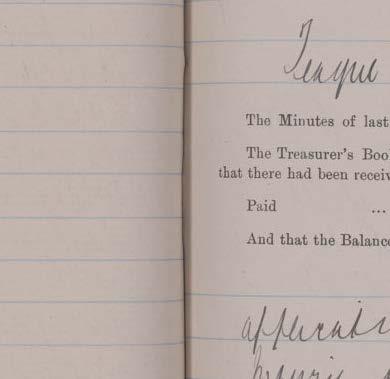 Teague
The Minutes of last
The Treasurer's Boo
that there had been receiv
Paid ...
And that the Balance